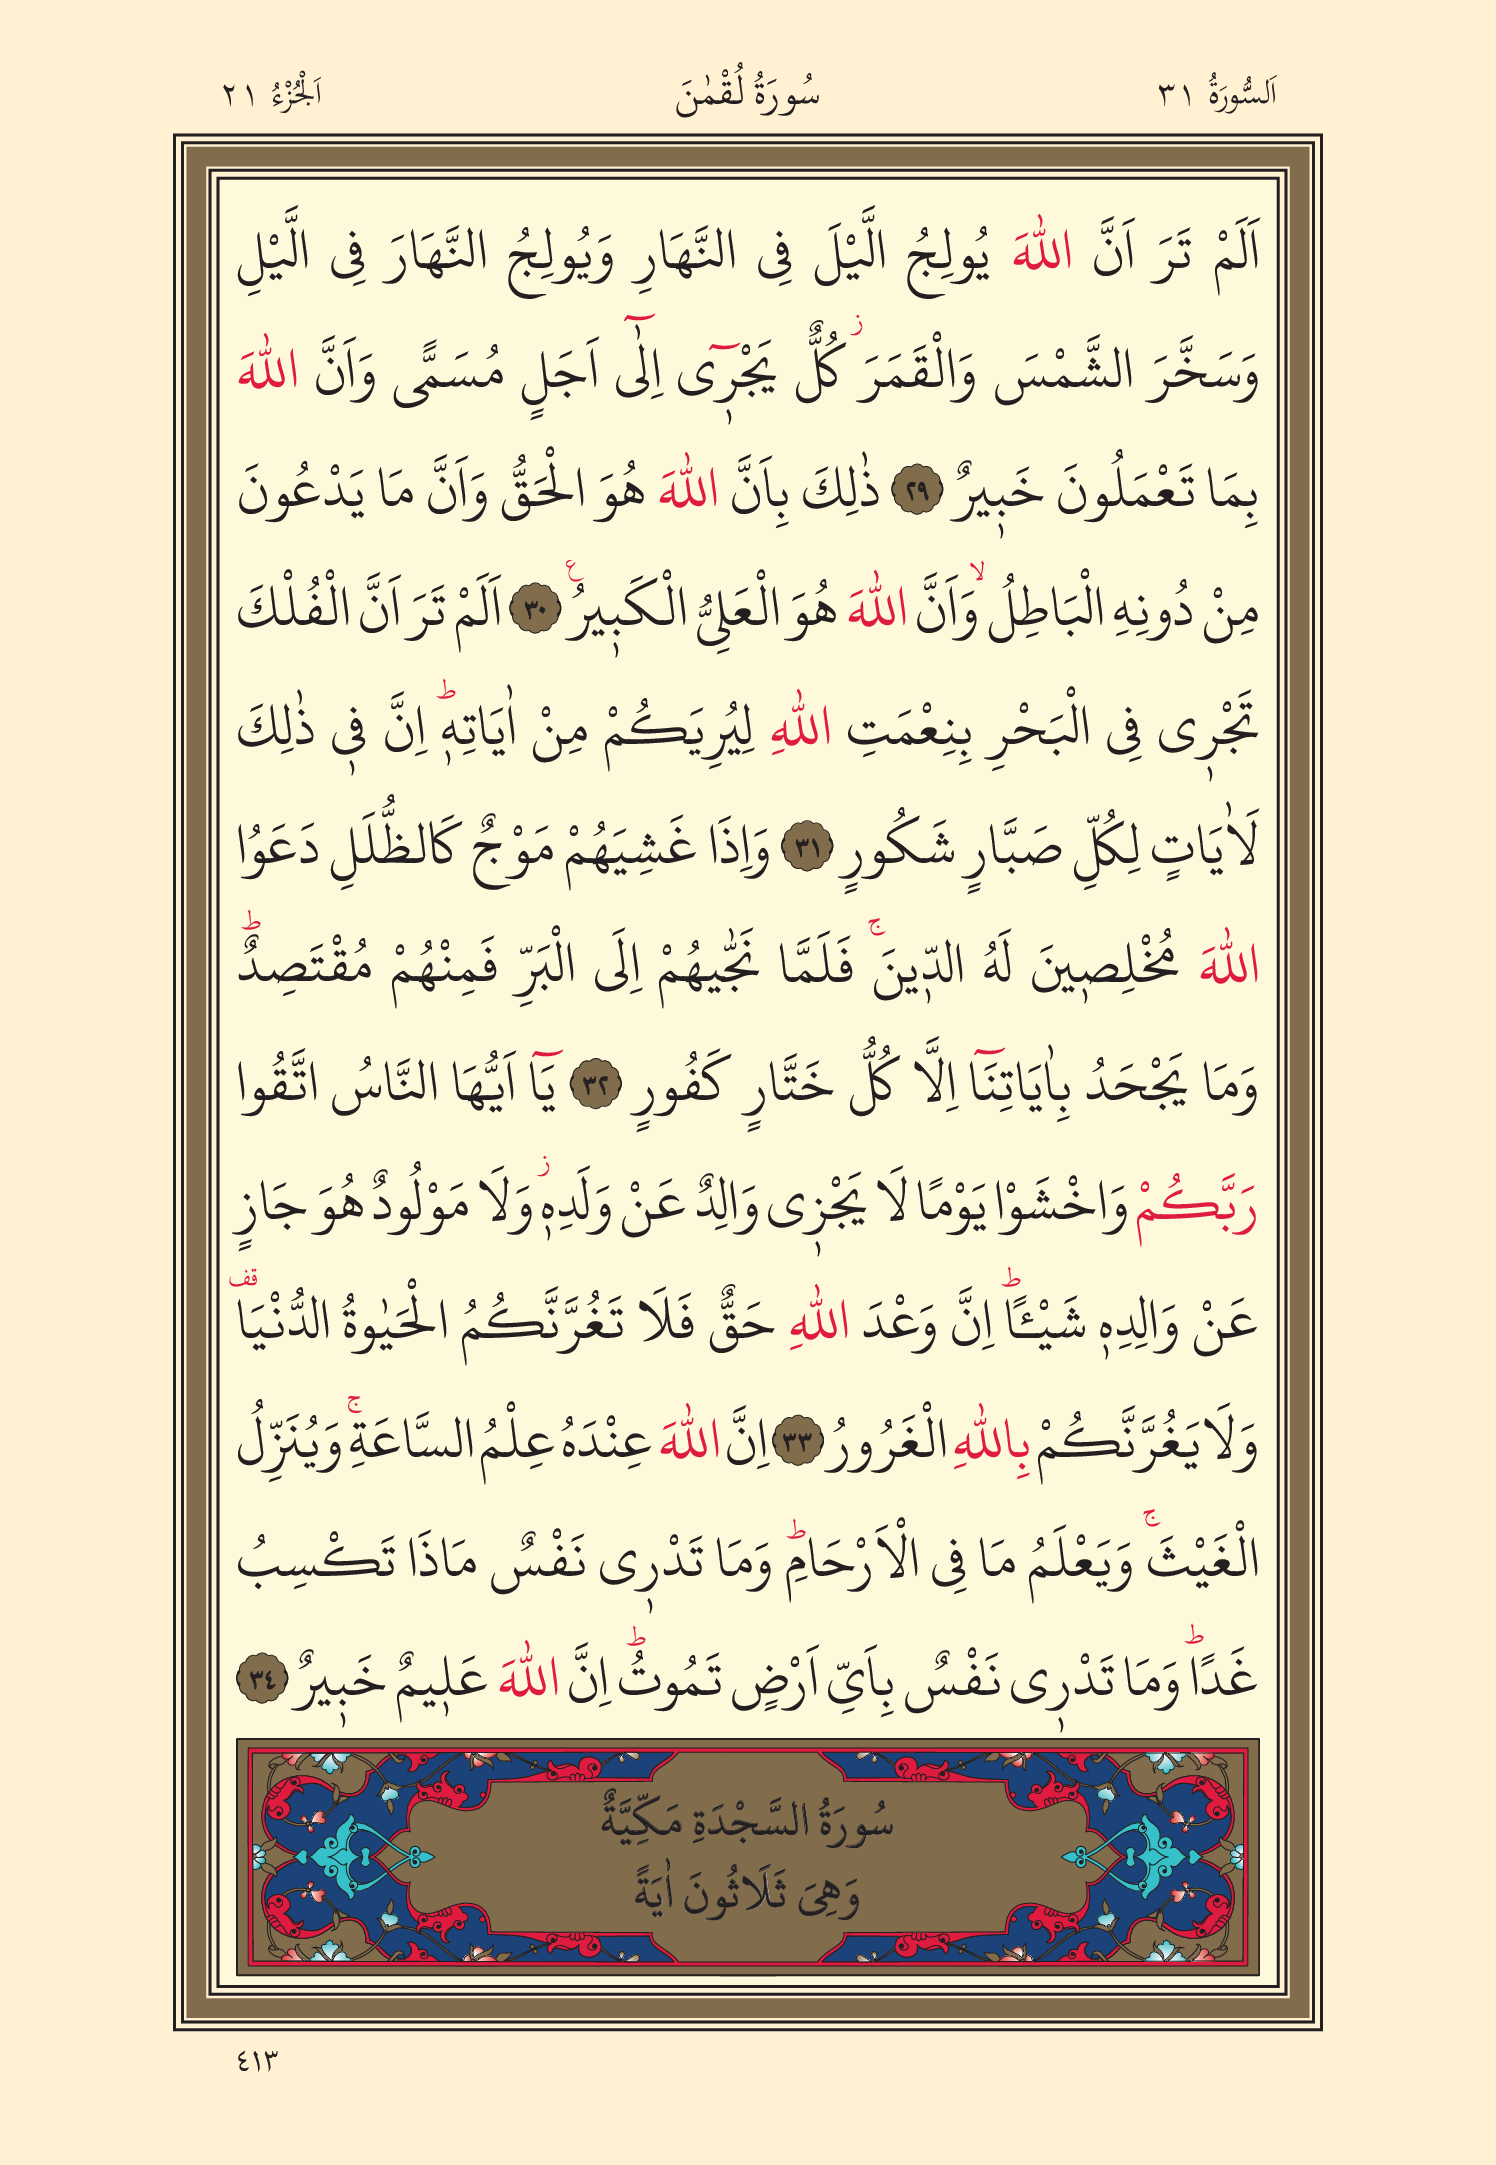 اَلسُّورَةُ ٣١ سُورَةُ لُقْمٰنَ اَلْجُزْءُ ٢١
اَلَمْ تَرَ اَنَّ اللّٰهَ يُولِجُ الَّيْلَ فِى النَّهَارِ وَيُولِجُ النَّهَارَ فِى الَّيْلِ
وَسَخَّرَ الشَّمْسَ وَالْقَمَرَ ز كُلٌّ يَجْرٖٓى اِلٰٓى اَجَلٍ مُسَمًّى وَاَنَّ اللّٰهَ
بِمَا تَعْمَلُونَ خَبٖيرٌ ٢٩ ذٰلِكَ بِاَنَّ اللّٰهَ هُوَ الْحَقُّ وَاَنَّ مَا يَدْعُونَ
مِنْ دُونِهِ الْبَاطِلُ لا وَاَنَّ اللّٰهَ هُوَ الْعَلِىُّ الْكَبٖيرُ ع ٣٠ اَلَمْ تَرَ اَنَّ الْفُلْكَ
تَجْرٖى فِى الْبَحْرِ بِنِعْمَتِ اللّٰهِ لِيُرِيَكُمْ مِنْ اٰيَاتِهٖ ط اِنَّ فٖى ذٰلِكَ
لَاٰيَاتٍ لِكُلِّ صَبَّارٍ شَكُورٍ ٣١ وَاِذَا غَشِيَهُمْ مَوْجٌ كَالظُّلَلِ دَعَوُا
اللّٰهَ مُخْلِصٖينَ لَهُ الدّٖينَ ج فَلَمَّا نَجّٰيهُمْ اِلَى الْبَرِّ فَمِنْهُمْ مُقْتَصِدٌ ط
وَمَا يَجْحَدُ بِاٰيَاتِنَٓا اِلَّا كُلُّ خَتَّارٍ كَفُورٍ ٣٢ يَٓا اَيُّهَا النَّاسُ اتَّقُوا
رَبَّكُمْ وَاخْشَوْا يَوْمًا لَا يَجْزٖى وَالِدٌ عَنْ وَلَدِهٖ ز وَلَا مَوْلُودٌ هُوَ جَازٍ
عَنْ وَالِدِهٖ شَيْـًٔا ط اِنَّ وَعْدَ اللّٰهِ حَقٌّ فَلَا تَغُرَّنَّكُمُ الْحَيٰوةُ الدُّنْيَا قف
وَلَا يَغُرَّنَّكُمْ بِاللّٰهِ الْغَرُورُ ٣٣ اِنَّ اللّٰهَ عِنْدَهُ عِلْمُ السَّاعَةِ ج وَيُنَزِّلُ
الْغَيْثَ ج وَيَعْلَمُ مَا فِى الْاَرْحَامِ ط وَمَا تَدْرٖى نَفْسٌ مَاذَا تَكْسِبُ
غَدًا ط وَمَا تَدْرٖى نَفْسٌ بِاَىِّ اَرْضٍ تَمُوتُ ط اِنَّ اللّٰهَ عَلٖيمٌ خَبٖيرٌ ٣٤
سُورَةُ السَّجْدَةِ مَكِّيَّةٌ
وَهِىَ ثَلَاثُونَ اٰيَةً
٤١٣